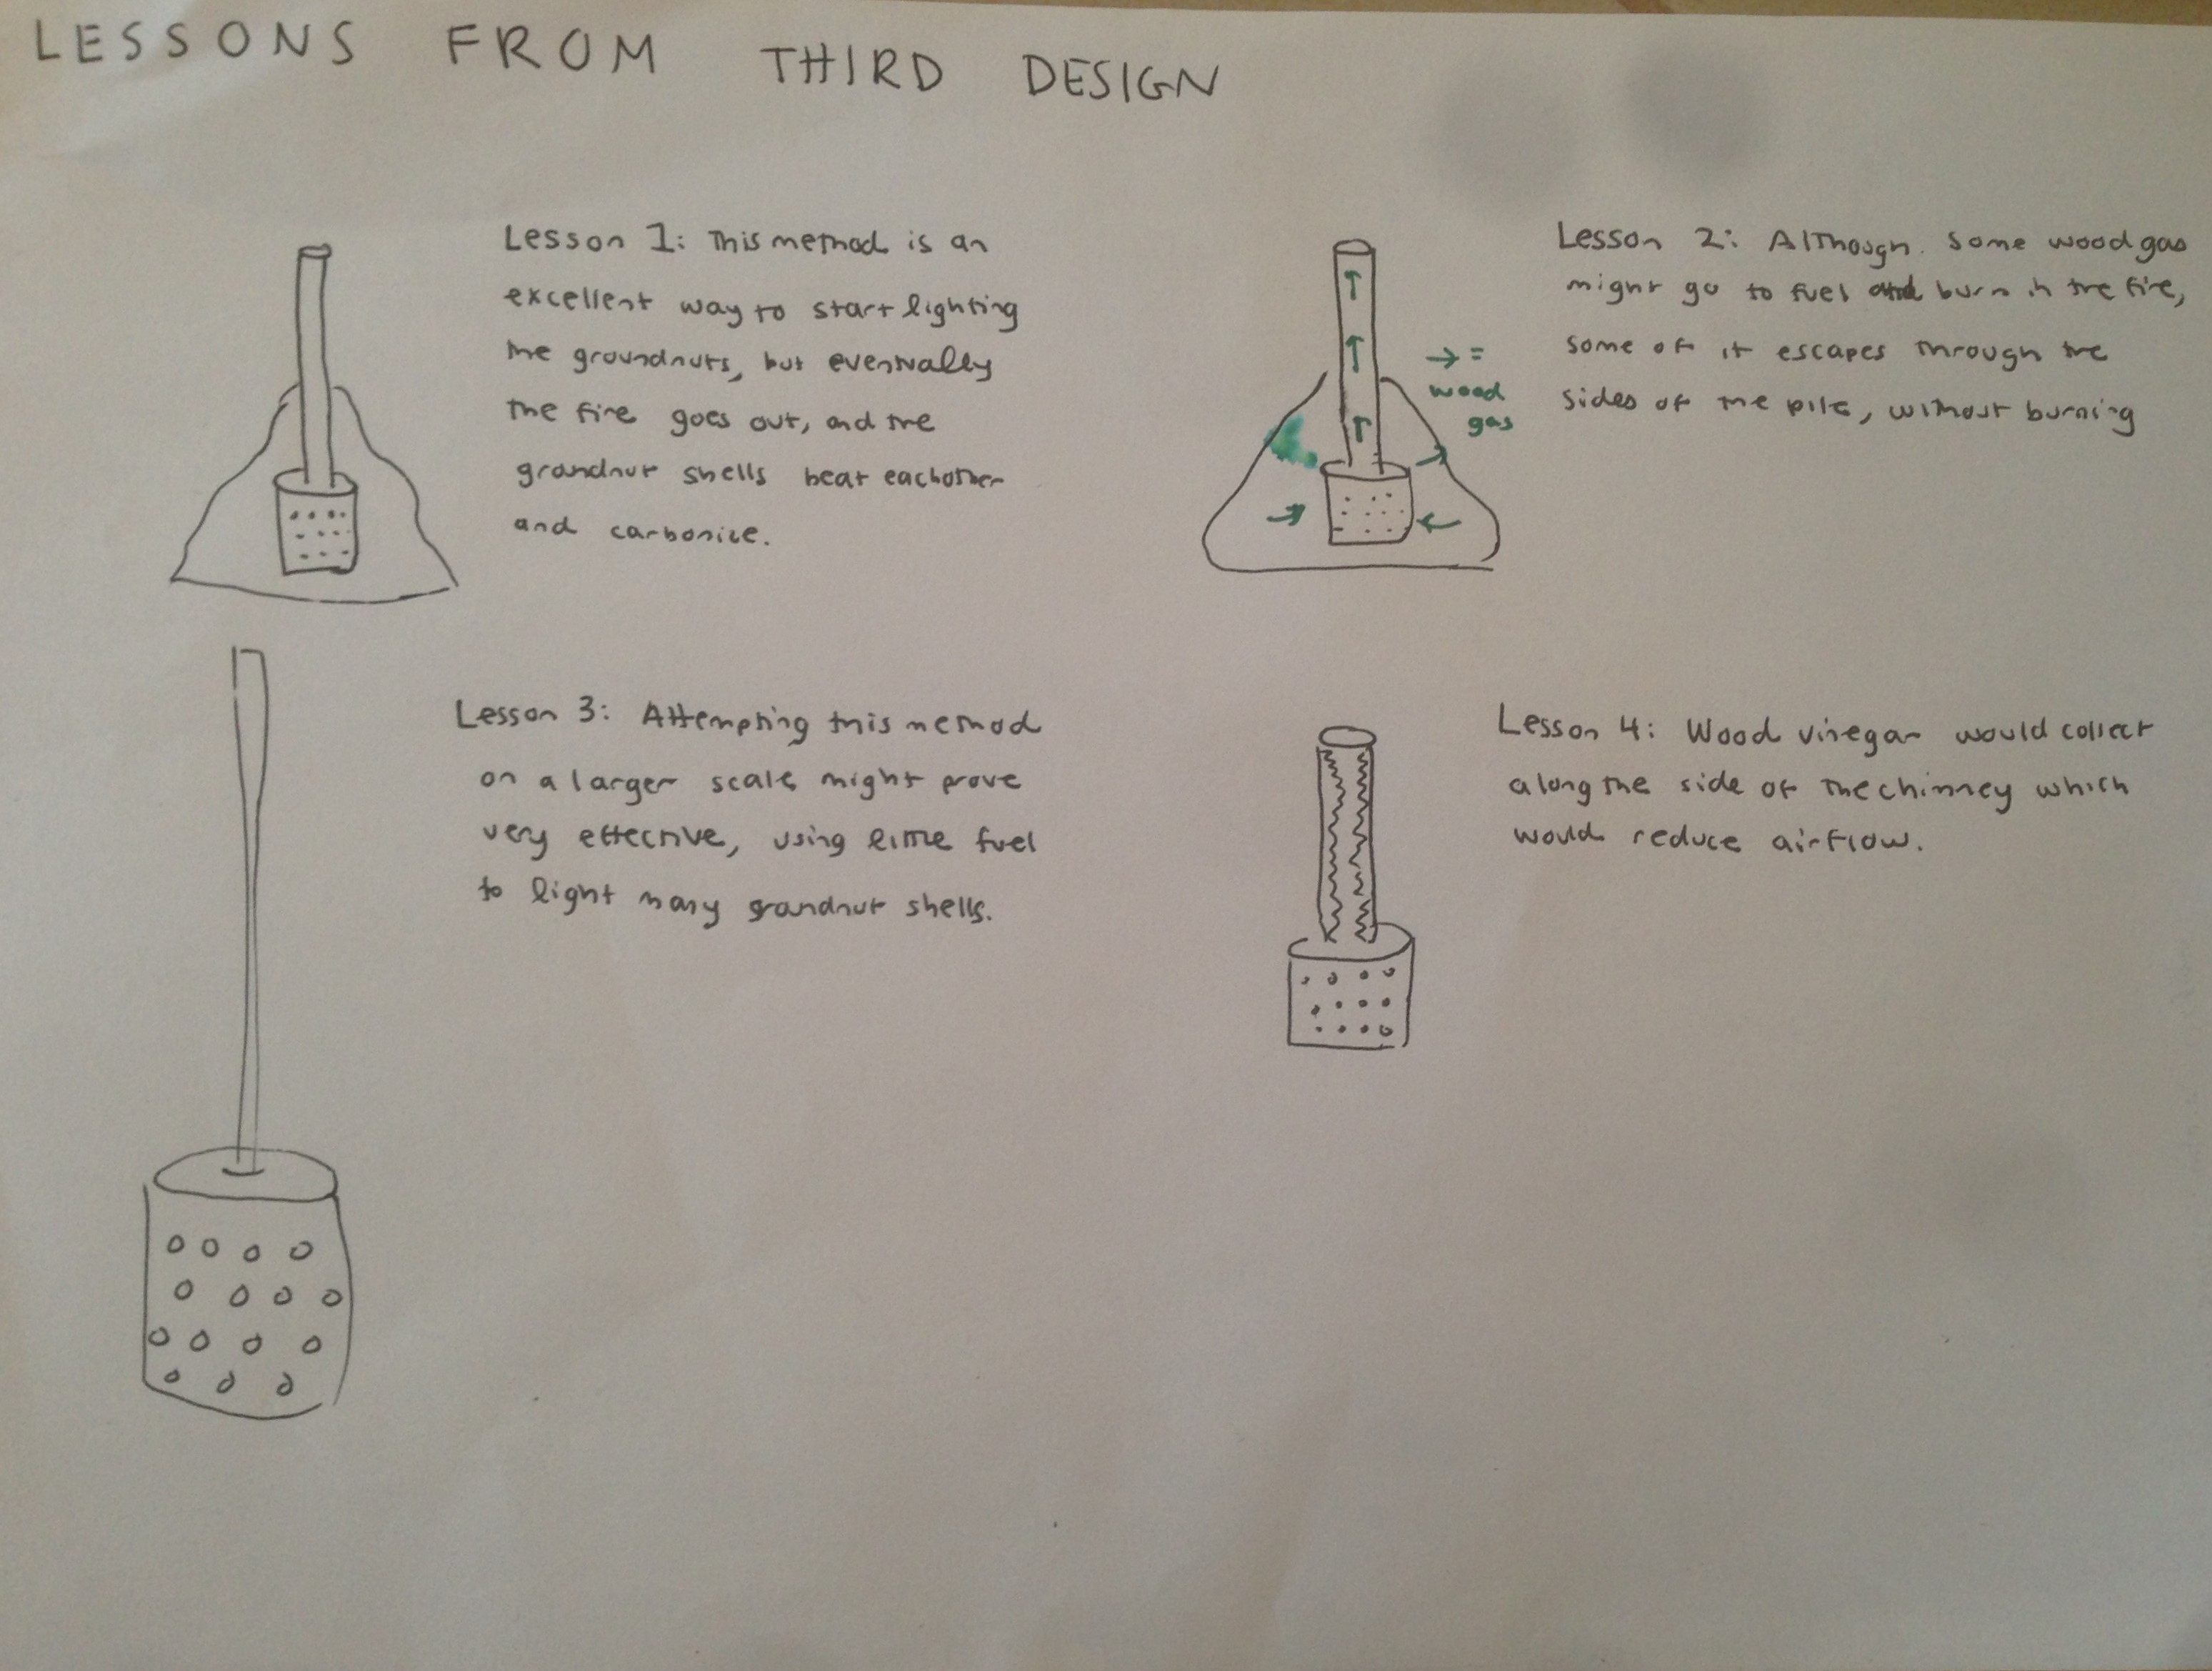 LESSONS FROM THIRD DESIGN
Lesson 1: This method is an
excellent way to start lighting
the groundnuts, but eventually
the fire goes out, and the
grandnut shells beat eachother
and carbonize.
Lesson 2: Although some wood gas
might go to fuel and burn in the fire,
some of it escapes through the
sides of the pile, without burning
→ =
wood
gas
Lesson 3: Attempting this method
on a larger scale might prove
very effective, using little fuel
to light many grandnut shells.
Lesson 4: Wood vinegar would collect
along the side of the chimney which
would reduce airflow.